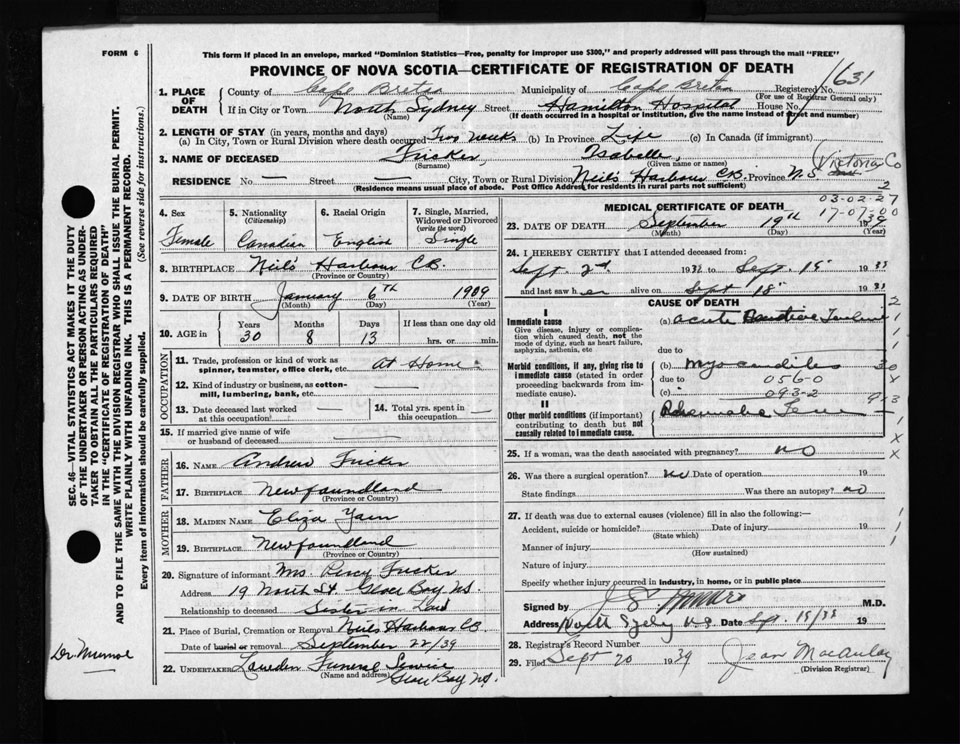 FORM 6
This form if placed in an envelope, marked "Dominion Statistics—Free, penalty for improper use $300," and properly addressed will pass through the mail "FREE"
PROVINCE OF NOVA SCOTIA—CERTIFICATE OF REGISTRATION OF DEATH
1631
1. PLACE OF DEATH
County of Cape Breton Municipality of Cape Breton Registered No.
(For use of Registrar General only)
If in City or Town North Sydney Street Hamilton Hospital House No.
(Name) (If death occurred in a hospital or institution, give the name instead of street and number)
2. LENGTH OF STAY (in years, months and days)
(a) In City, Town or Rural Division where death occurred Two weeks (b) In Province Life (c) In Canada (if immigrant)
3. NAME OF DECEASED Fricker, Isabelle,
(Surname) (Given name or names)
Victoria Co
RESIDENCE No. — Street — City, Town or Rural Division Neils Harbour CB. Province N.S
(Residence means usual place of abode. Post Office Address for residents in rural parts not sufficient)
4. Sex
Female
5. Nationality
(Citizenship)
Canadian
6. Racial Origin
English
7. Single, Married, Widowed or Divorced
(write the word)
Single
8. BIRTHPLACE Neils Harbour CB
(Province or Country)
9. DATE OF BIRTH January 6th 1909
(Month) (Day) (Year)
10. AGE in
Years Months Days If less than one day
30 8 13 hrs. or min.
OCCUPATION
11. Trade, profession or kind of work as spinner, teamster, office clerk, etc. At Home
12. Kind of industry or business, as cotton-mill, lumbering, bank, etc. —
13. Date deceased last worked at this occupation —
14. Total yrs. spent in this occupation —
15. If married give name of wife or husband of deceased —
FATHER
16. NAME Andrew Fricker
17. BIRTHPLACE Newfoundland
(Province or Country)
MOTHER
18. MAIDEN NAME Eliza
19. BIRTHPLACE Newfoundland
(Province or Country)
20. Signature of informant Mrs Percy Fricker
Address 19 North St. Glace Bay NS.
Relationship to deceased Sister in Law
21. Place of Burial, Cremation or Removal Neils Harbour CB.
Date of burial or removal September 22/39
22. UNDERTAKER Funeral Service
(Name and address) Glace Bay NS.
MEDICAL CERTIFICATE OF DEATH
2
03-02-27
17-07-00
23. DATE OF DEATH September 19th 1939
(Month) (Day) (Year)
24. I HEREBY CERTIFY that I attended deceased from:
Sept. 2nd 19 to Sept. 19 19
and last saw her alive on Sept 18 19
CAUSE OF DEATH
I
Immediate cause
Give disease, injury or complication which caused death, not the mode of dying, such as heart failure, asphyxia, asthenia, etc
(a) acute
due to
Morbid conditions, if any, giving rise to immediate cause (stated in order proceeding backwards from immediate cause).
(b) Myocarditis
due to 056-0
(c) 093-2
II
Other morbid conditions (if important) contributing to death but not causally related to immediate cause.
Rheumatic Fever
25. If a woman, was the death associated with pregnancy? no
26. Was there a surgical operation? no Date of operation 19
State findings Was there an autopsy? no
27. If death was due to external causes (violence) fill in also the following:—
Accident, suicide or homicide? Date of injury 19
(State which)
Manner of injury
(How sustained)
Nature of injury
Specify whether injury occurred in industry, in home, or in public place
Signed by M.D.
Address North Sydney N.S. Date Sep. 19
28. Registrar's Record Number
29. Filed Sept 20 1939 Jean MacAulay
(Division Registrar)
SEC. 46—VITAL STATISTICS ACT MAKES IT THE DUTY
OF THE UNDERTAKER OR PERSON ACTING AS UNDER-
TAKER TO OBTAIN ALL THE PARTICULARS REQUIRED
IN THE "CERTIFICATE OF REGISTRATION OF DEATH"
AND TO FILE THE SAME WITH THE DIVISION REGISTRAR WHO SHALL ISSUE THE BURIAL PERMIT.
WRITE PLAINLY WITH UNFADING INK. THIS IS A PERMANENT RECORD.
Every item of information should be carefully supplied. (See reverse side for instructions.)
Dr. Munroe